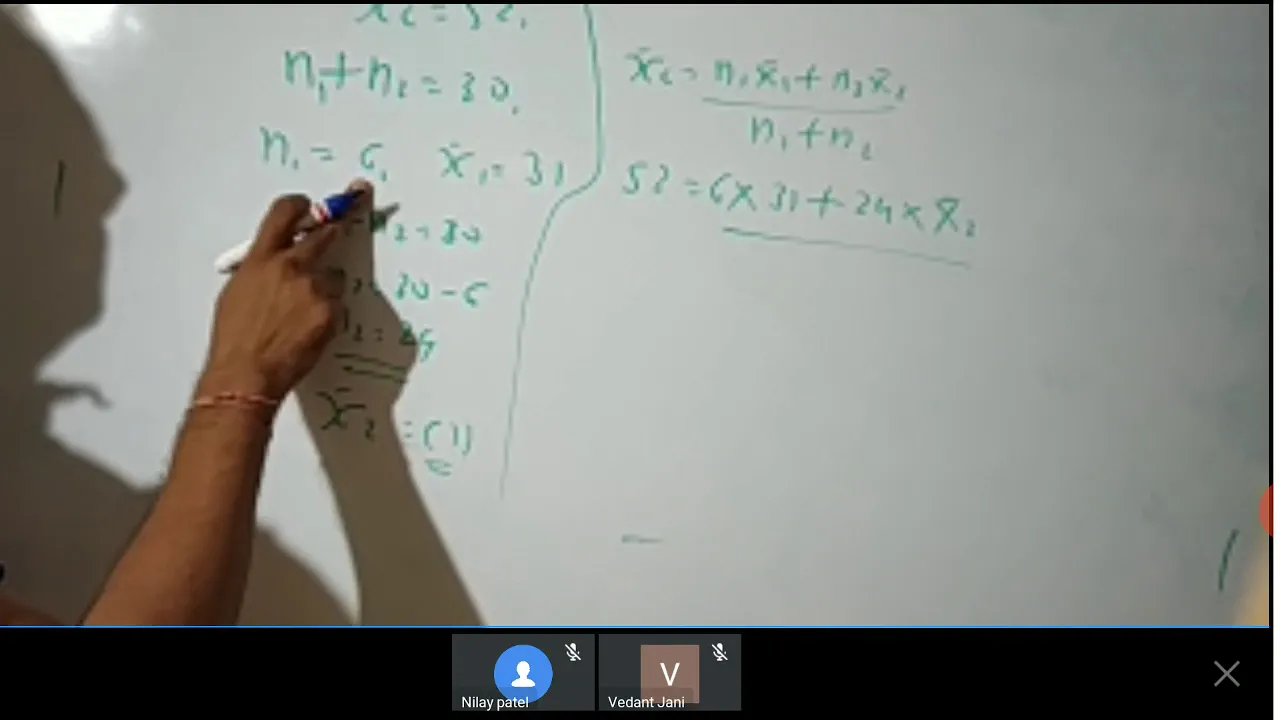 x̄c = 52,
n₁ + n₂ = 30,
n₁ = 6, x̄₁ = 31
n₂ = 30
n₂ = 30 - 6
n₂ = 24
x̄₂ = (?)
x̄c = n₁x̄₁ + n₂x̄₂
n₁ + n₂
52 = 6 × 31 + 24 × x̄₂
Nilay patel
V
Vedant Jani